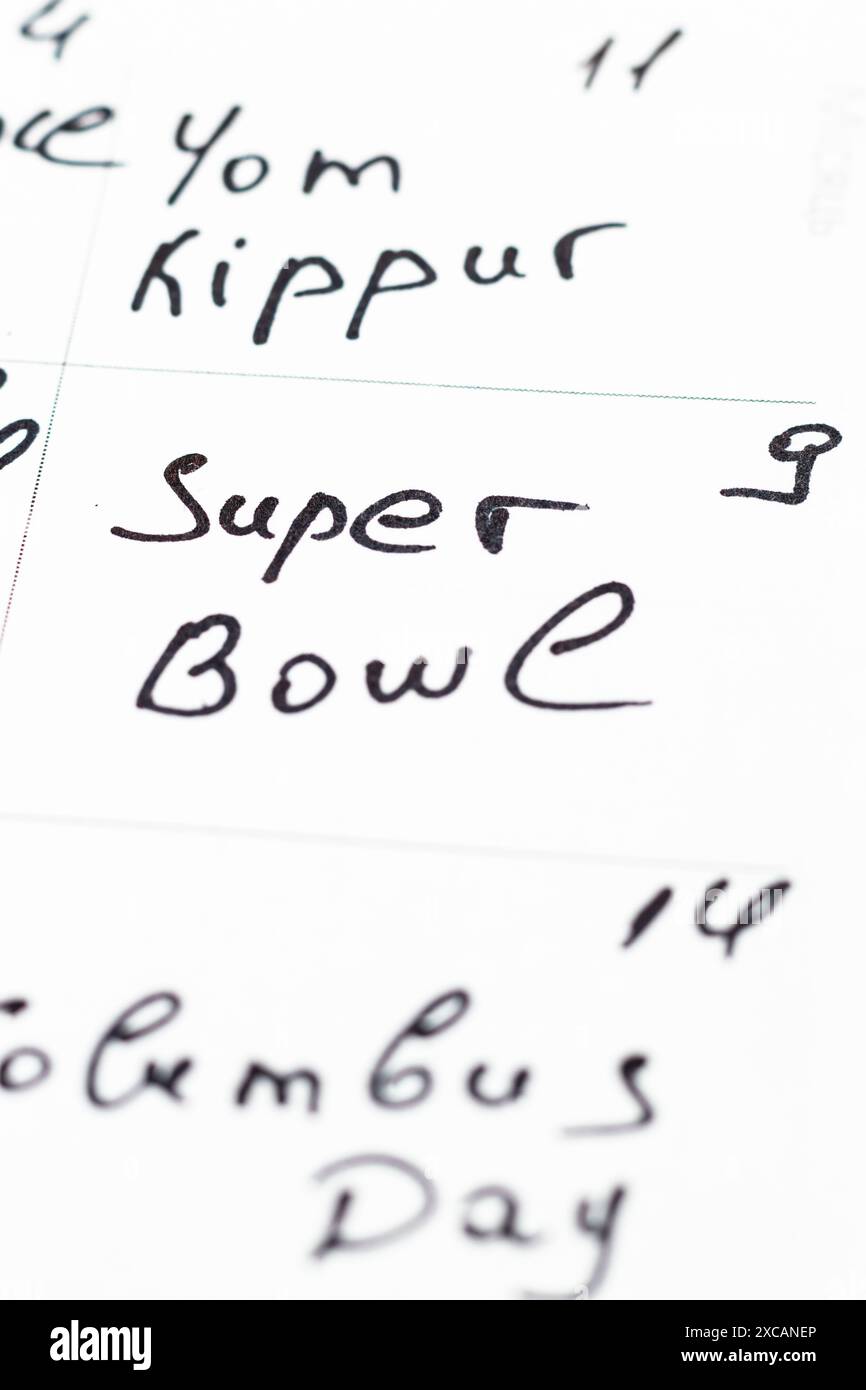 4 11
Yom
Kippur
Super 9
Bowl
14
Columbus
Day
alamy
Image ID: 2XCANEP
www.alamy.com